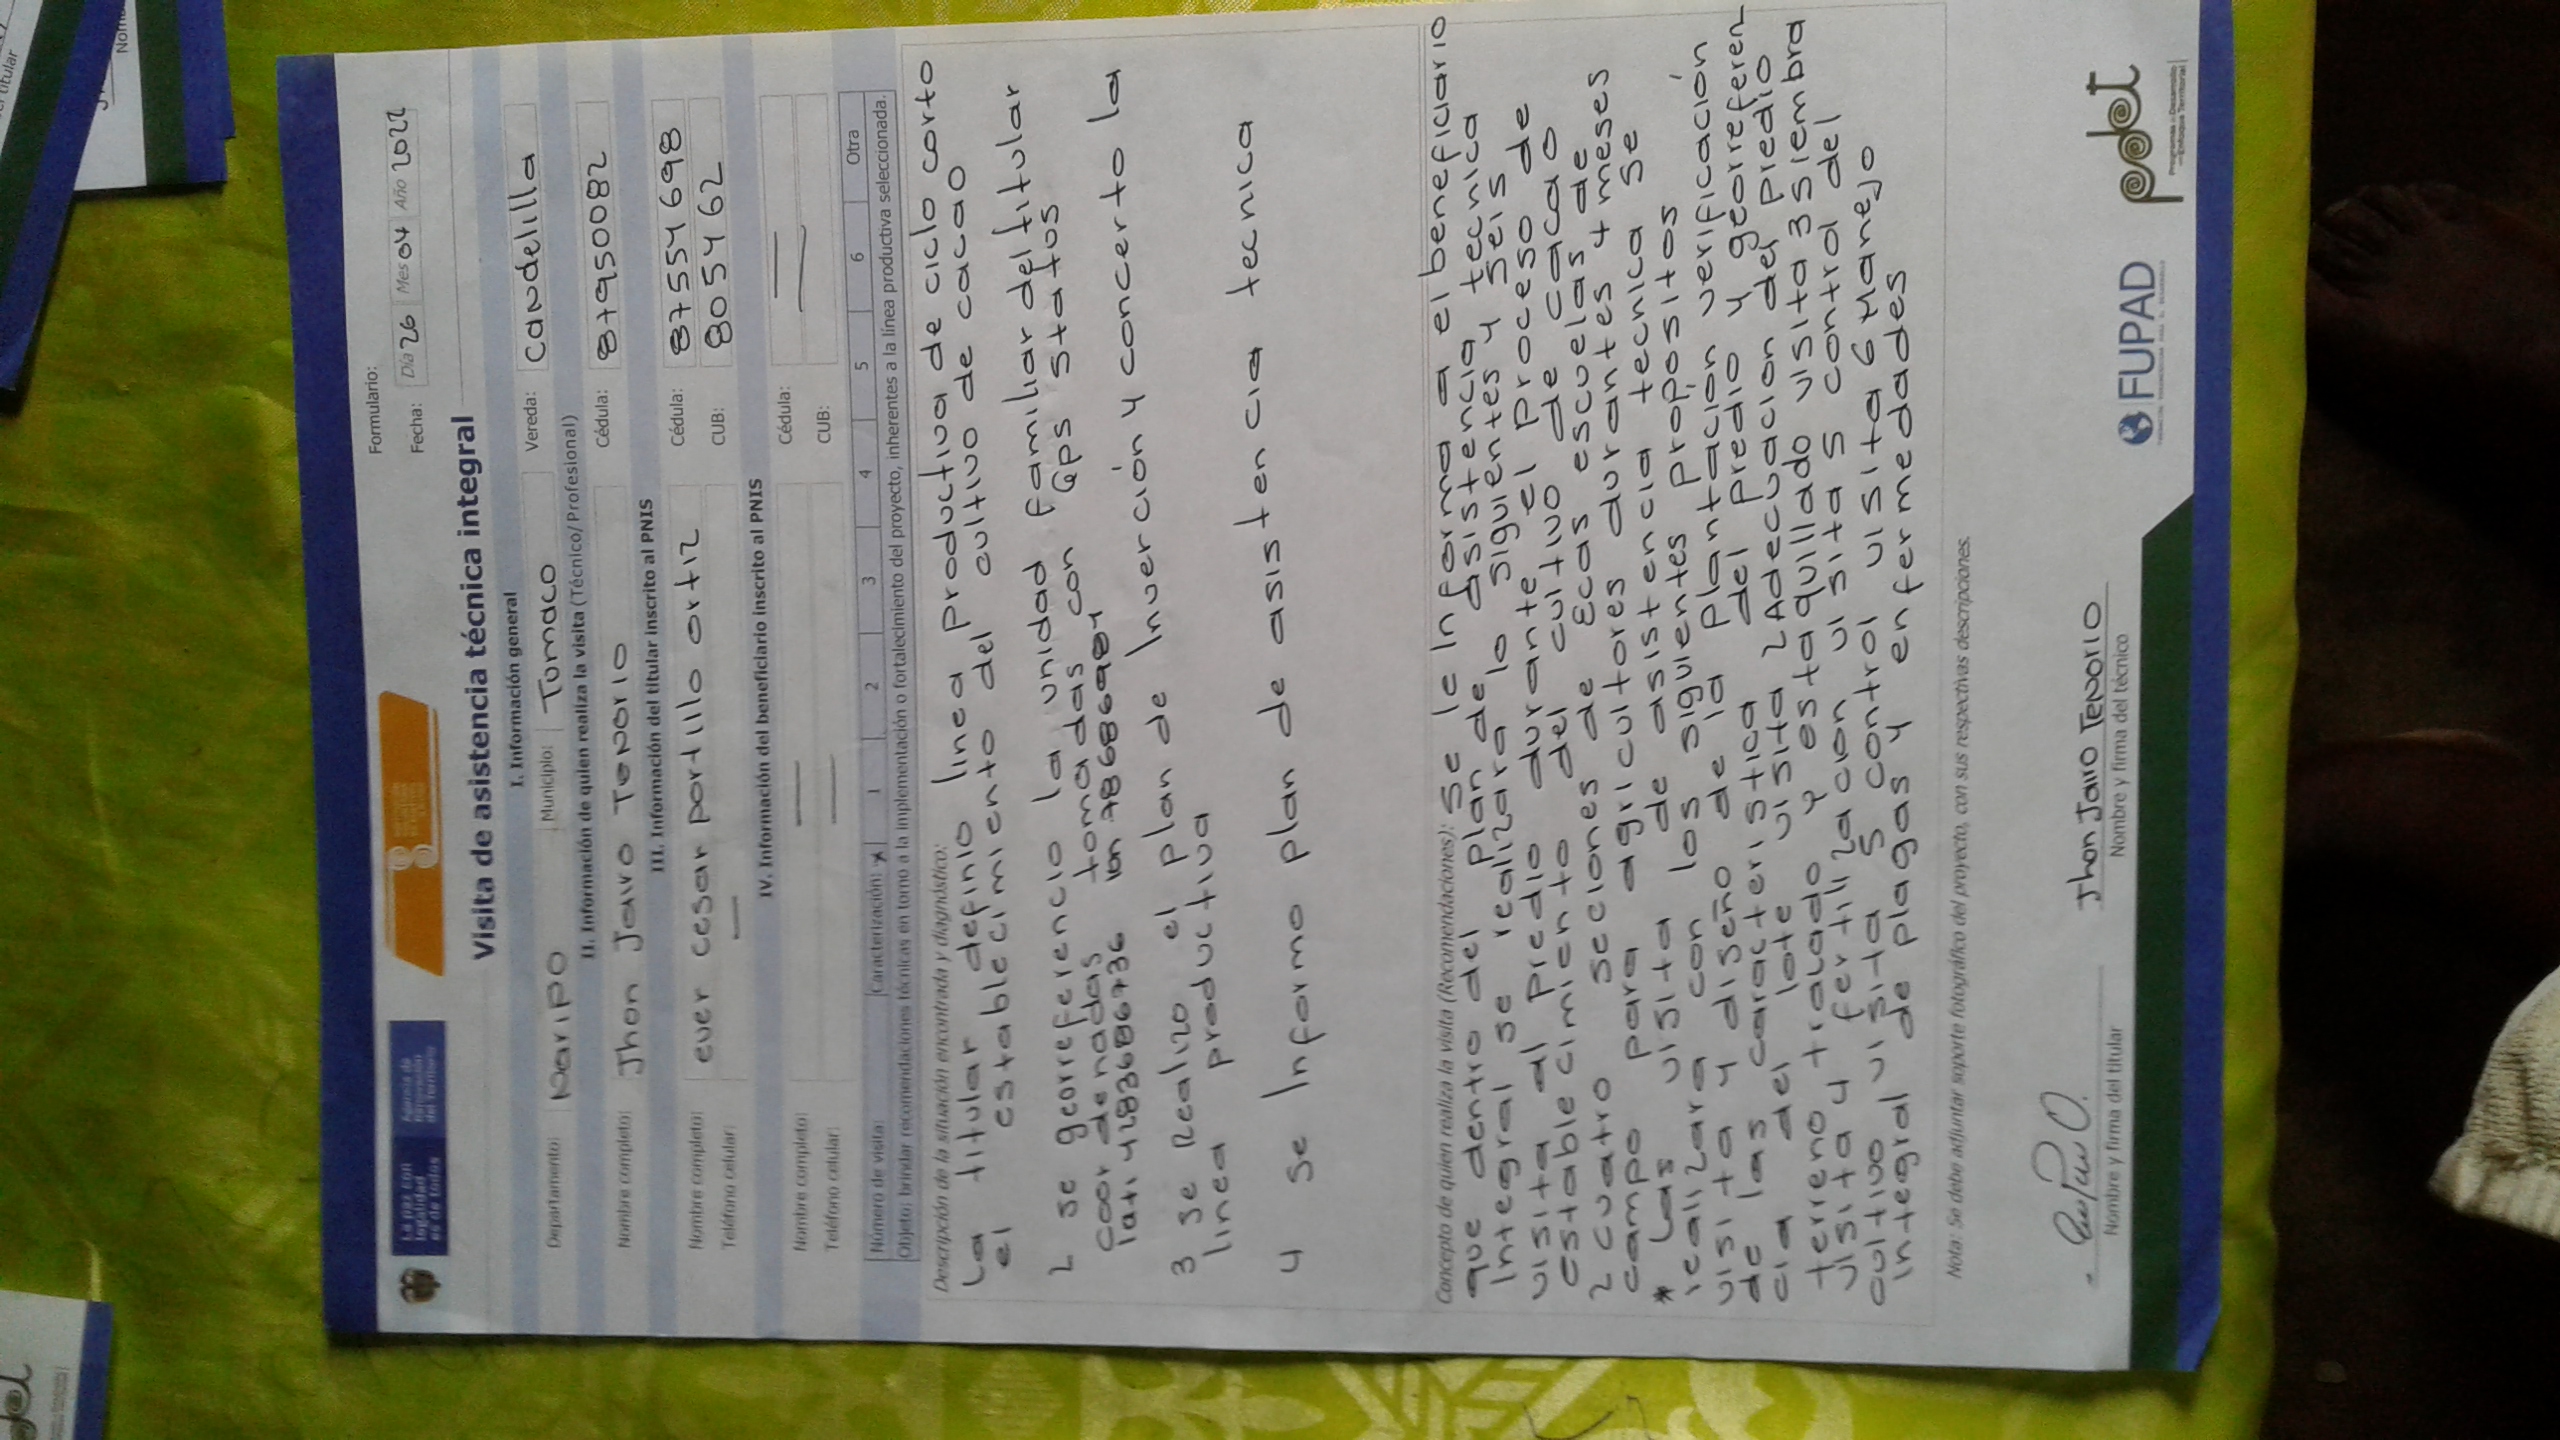 La paz con
legalidad
es de todos
Agencia de
Renovación
del Territorio
Formulario:
Fecha: Día 26 Mes 04 Año 2022
Visita de asistencia técnica integral
I. Información general
Departamento: Nariño Municipio: Tumaco Vereda: candelilla
II. Información de quien realiza la visita (Técnico/Profesional)
Nombre completo: Jhon Jairo Tenorio Cédula: 87950082
III. Información del titular inscrito al PNIS
Nombre completo: ever cesar portillo ortiz Cédula: 87554698
Teléfono celular: — CUB: 805462
IV. Información del beneficiario inscrito al PNIS
Nombre completo: — Cédula: —
Teléfono celular: — CUB: —
Número de visita: Caracterización: x 1 2 3 4 5 6 Otra
Objeto: brindar recomendaciones técnicas en torno a la implementación o fortalecimiento del proyecto, inherentes a la línea productiva seleccionada.
Descripción de la situación encontrada y diagnóstico:
La titular definio linea productiva de ciclo corto
el establecimiento del cultivo de cacao
2 se georreferencio la unidad familiar del titular
coordenadas tomadas con Gps status
lati 4283686736 lon
3 se Realizo el plan de Inverción y concerto la
linea productiva
4 se Informo plan de asistencia tecnica
Concepto de quien realiza la visita (Recomendaciones): se le Informa a el beneficiario
que dentro del plan de asistencia tecnica
Integral se realizara lo siguientes y seis
visita al predio durante el proceso de
establecimiento del cultivo de cacao
2 cuatro seciones de Ecas escuelas de
campo para agricultores durantes 4 meses
* Las visita de asistencia tecnica se
realizara con los siguientes propositos
visita y diseño de la plantación verificación
de las caracteristica del predio y georreferen
cia del lote visita 2 Adecuacion del predio
terreno tralado y estaquillado visita 3 siembra
visita 4 fertilizacion visita 5 control del
cultivo visita 5 control visita 6 Manejo
integral de plagas y enfermedades
Nota: Se debe adjuntar soporte fotográfico del proyecto, con sus respectivas descripciones.
Jhon Jairo Tenorio
Nombre y firma del titular Nombre y firma del técnico
FUPAD
pdet
Programas de Desarrollo
con Enfoque Territorial